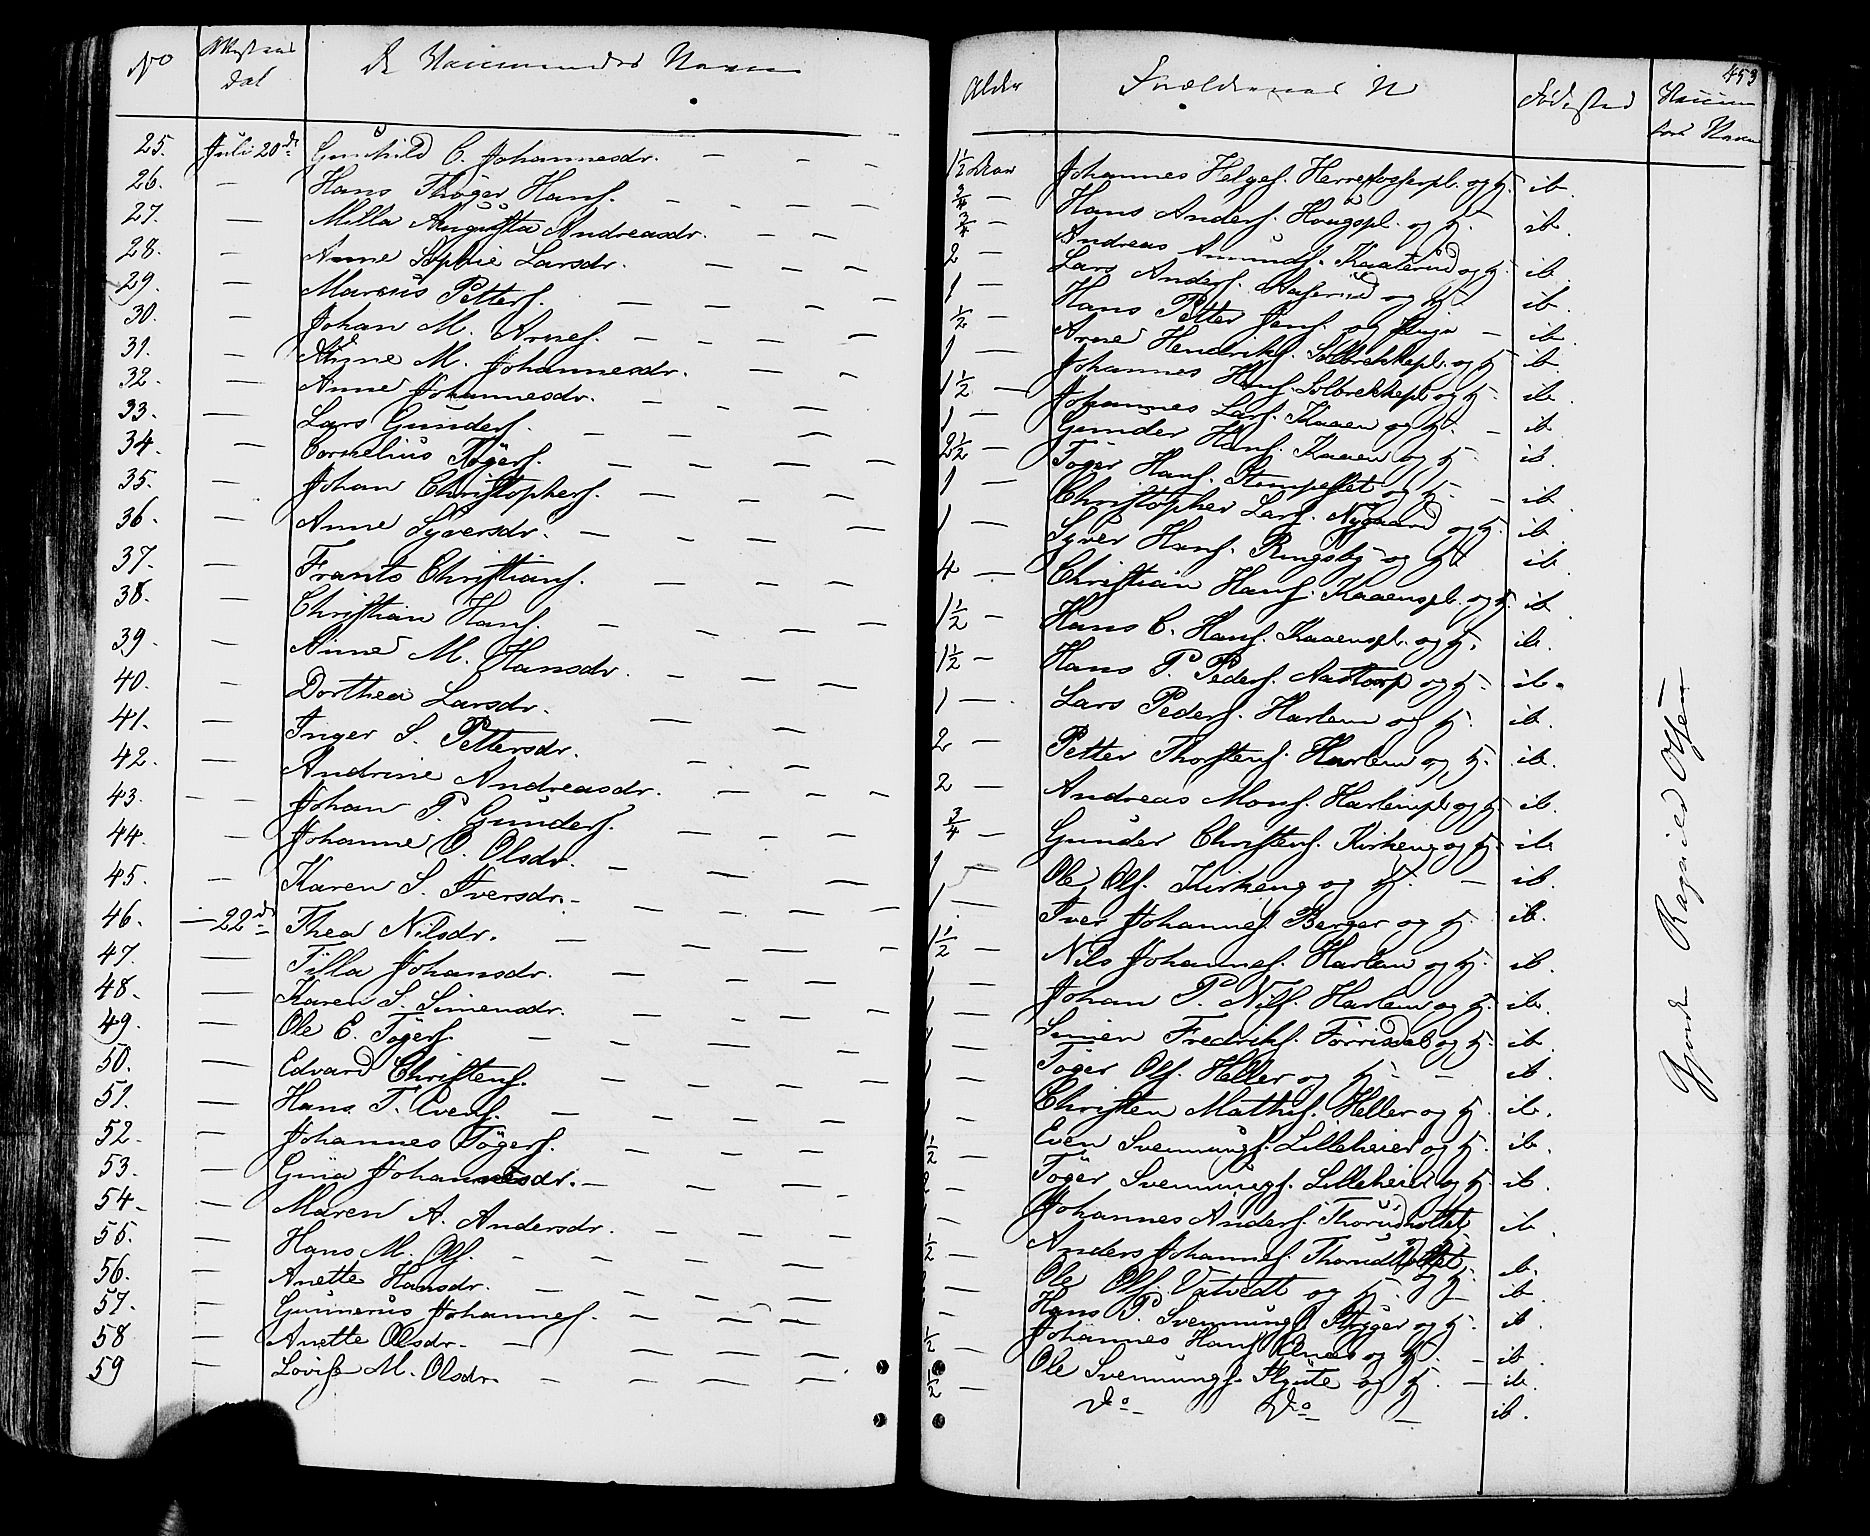 No
Attestens Dat
De Vaccineredes Navne
25. Juli 20de Gunhild C. Johannesdr. — — —
26. — Hans Thøger Hans. — — — —
27. — Milla Augusta Andreasdr. — —
28. — Anne Sophie Larsdr. — — —
29. — Marcus Petters. — — — —
30. — Johan M. Arnes. — — — —
31. — Agne M. Johannesdr. — — —
32. — Anne Johannesdr. — — —
33. — Lars Gunders. — — —
34. — Cornelius Tøgers. — — — —
35. — Johan Christophers. — — —
36. — Anne Syversdr. — — —
37. — Frants Christians. — — —
38. — Christian Hans. — — — —
39. — Anne M. Hansdr. — — — —
40. — Dorthea Larsdr. — —
41. — Inger S. Pettersdr. — — —
42. — Andrine Andreasdr. — — —
43. — — Johan P. Gunders. — — — —
44. — Johanne O. Olsdr. — — — —
45. — Karen S. Iversdr. — — — —
46. — 22de Thea Nilsdr. — — — —
47. — Tilla Johansdr. — — — —
48. — Karen S. Simensdr. — — — —
49. — Ole E. Tøgers. — — — —
50. — Edvard Christens. — — — —
51. — Hans T. Evens. — — — —
52. — Johannes Tøgers. — — — —
53. — Gina Johannesdr. — — — —
54. — Maren A. Andersdr. — — — —
55. — Hans M. Ols. — — — —
56. — Anette Hansdr. — — — —
57. — Gunnerus Johannes. — — —
58 — Anette Olsdr. — — — —
59 — Lovise M. Olsdr. — — — —
453
Alder
Forældrenes N
Fødested
Vaccinatørs Navn
1½ Aar Johannes Helges. Herrefosserpl. og H. ib.
¾ — Hans Anders. Haugspl. og H. ib.
¾ — Andreas Amunds. Kaaterud og H. ib.
2 — Lars Anders. Aaserud og H. ib.
1 — Hans Petter Jens. og Pige — ib.
½ — Arne Hendriks. Solbrekkepl. og H. ib.
1 — Johannes Hans. Solbrekkepl. og H. ib.
1½ — Johannes Lars. Kaaen og H. — ib
1 — Gunder Hans. Kaaen og H. ib.
2½ — Tøger Hans. Stempeslet og H. — ib
1 — Christopher Lars. Nygaard og H. ib
1 — Syver Hans. Ringsby og H. ib.
4 — Christian Hans. Kaaenspl. og H. ib
1½ — Hans C. Hans. Kaaenspl. og H. ib.
1½ — Hans P. Peders. Nastorp og H. ib.
1 — Lars Peders. Harlem og H. ib.
2 — Petter Thorstens. Harlem og H. ib.
2 — Andreas Mons. Harlempl. og H. ib.
¾ — Gunder Christens. Kirkeng og H. ib
1 — Ole Ols. Kirkeng og H. — ib.
1 — Iver Johannes. Berger og H. ib.
1½ — Nils Johannes. Harlem og H. ib.
1 — Johan P. Nils. Harlem og H. ib.
1 — Simen Fredriks. Førrisdal og H. ib.
1 — Tøger Ols. Heller og H. — ib.
1 — Christen Mathis. Heller og H. ib.
1 — Even Svennungs. Lilleheier og H. ib.
½ — Tøger Svennungs. Lilleheier og H. ib.
2 — Johannes Anders. Thorudholtet ib.
1 — Anders Johannes. Thorudholtet og H. ib.
½ — Ole Ols. Vatvedt og H. — ib.
— Hans P. Svennungs. Stryger og H. ib.
— Johannes Hans. Elnæs og H. — ib.
½ — Ole Svennungs. Flyute og H. — ib.
½ — Do — Do — ib.
Gjorde Ragnild Olsen